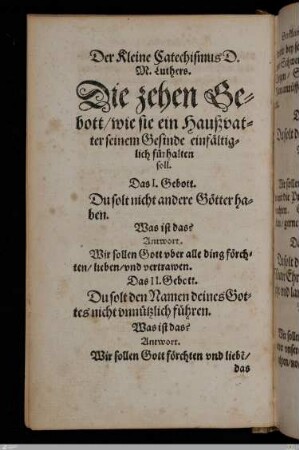 Der Kleine Catechismus D.
M. Luthers.
Die zehen Ge-
bott/wie sie ein Haußvat-
ter seinem Gesinde einfältig-
lich fürhalten
soll.
Das I. Gebott.
Du solt nicht andere Götter ha-
ben.
Was ist das?
Antwort.
Wir sollen Gott vber alle ding förch-
ten/lieben/vnd vertrawen.
Das II. Gebott.
Du solt den Namen deines Got-
tes nicht vnnützlich führen.
Was ist das?
Antwort.
Wir sollen Gott förchten vnd liebẽ/
das